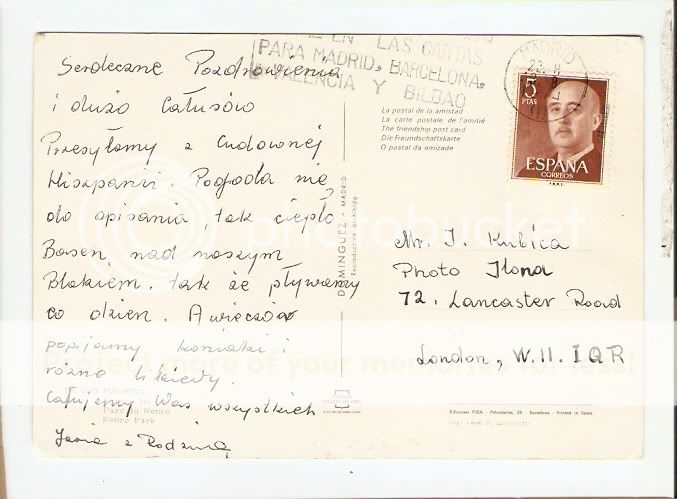 Serdeczne Pozdrowienia
i dużo Całusów
Przesyłamy z Cudownej
Hiszpanii. Pogoda nie
do opisania, tak ciepło
Basen nad naszym
Blokiem, tak że pływamy
co dzien. A wieczór
popijamy koniaki i
różne likiery.
Całujemy Was wszystkich
z Rodziną
EN LAS CARTAS
PARA MADRID, BARCELONA,
VALENCIA Y BILBAO
MADRID
5
PTAS
ESPAÑA
CORREOS
La postal de la amistad
La carte postale de l'amitié
The friendship post card
Die Freundschaftskarte
O postal da amizade
DOMINGUEZ - MADRID
Reproducción prohibida
Mr. J. Kubica
Photo Ilona
72. Lancaster Road
London, W.11. 1QR
MADRID
Retiro Park
Printed in Spain
photobucket
Protect more of your memories for less!